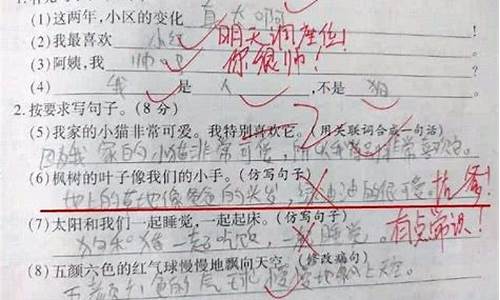 (1)这两年,小区的变化 真大啊
(2)我最喜欢 小红 明天调座位!
(3)阿姨,我 帅吧 你很帅!
(4) 我 是 人 ,不是 狗
2.按要求写句子。(8分)
(5)我家的小猫非常可爱。我特别喜欢它。(用关联词合成一句话)
因为我家的小猫非常可爱,所以我 非常喜欢它。
(6)枫树的叶子像我们的小手。(仿写句子)
地上的草地像爸爸的头发,绿油油的很可爱。
(7)太阳和我们一起睡觉,一起起床。(仿写句子)
狗和猪一起吃饭,一起睡觉。 有点常识!
(8)五颜六色的红气球慢慢地飘向天空。(修改病句)
五颜六色的气球慢慢地飘上天空。